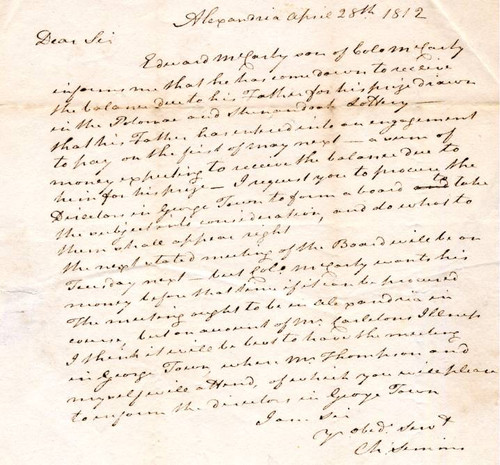 Alexandria April 28th 1812
Dear Sir
Edward McCarty son of Colo McCarty
informs me that he has come down to receive
the balance due to his Father for his prize drawn
in the Potomac and Shenandoah Lottery—
that his Father has entered into an engagement
to pay on the first of may next — a sum of
money expecting to receive the balance due to
him for his prize — I request you to procure the
Directors in George Town to form a board and to take
the subject into consideration, and do what to
them shall appear right
the next stated meeting of the Board will be on
Tuesday next — but Colo McCarty wants his
money before that term if it can be procured
The meeting ought to be in Alexandria in
course, but on account of Mr Carletons Illness
I think it will be best to have the meeting
in George Town, when Mr Thompson and
myself will attend, of which you will please
to inform the directors in George Town
I am Sir
yr obedt Servt
Ch Simms